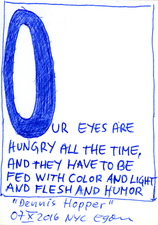 OUR EYES ARE
HUNGRY ALL THE TIME,
AND THEY HAVE TO BE
FED WITH COLOR AND LIGHT
AND FLESH AND HUMOR
"Dennis Hopper"
07 X 2016 NYC Egon